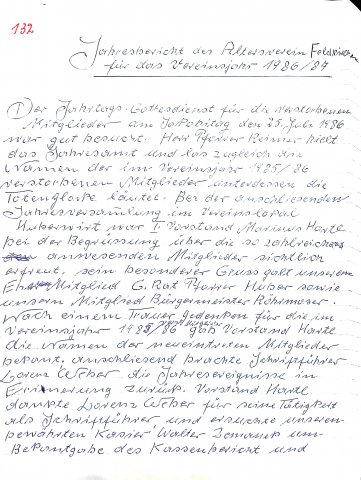 132
Jahresbericht des Altersverein Feldkirchen
für das Vereinsjahr 1986/87
Der Jahrtags-Gottesdienst für die verstorbenen
Mitglieder am Jakobitag den 25. Juli 1986
war gut besucht. Herr Pfarrer Reimer hielt
das Jahresamt und las zugleich die
Namen der im Vereinsjahr 1985/86
verstorbenen Mitglieder unterdessen die
Totenglocke läutet. Bei der anschliessenden
Jahresversamlung im Vereinslokal
Huberwirt war I. Vorstand Hartl
bei der Begrüssung über die so zahlreichen
anwesenden Mitglieder sichtlich
erfreut. sein besonderer Gruss galt unserem
Ehrenmitglied G. Rat Pfarrer Huber sowie
unserm Mitglied Bürgermeister Rohrmoser.
Nach einem Trauer gedenken für die im
Vereinsjahr gab Vorstand Hartl
die Namen der neueintreten Mitglieder
bekant. anschliesend brachte Schriftführer
Lorenz Weber die Jahresereignisse in
Erinnerung zurück. Vorstand Hartl
dankte Lorenz Weber für seine Tätigkeit
als Schriftführer und ersuchte unseren
bewährten Kasier Walter Zemanek um
Bekantgabe des Kassenbericht und